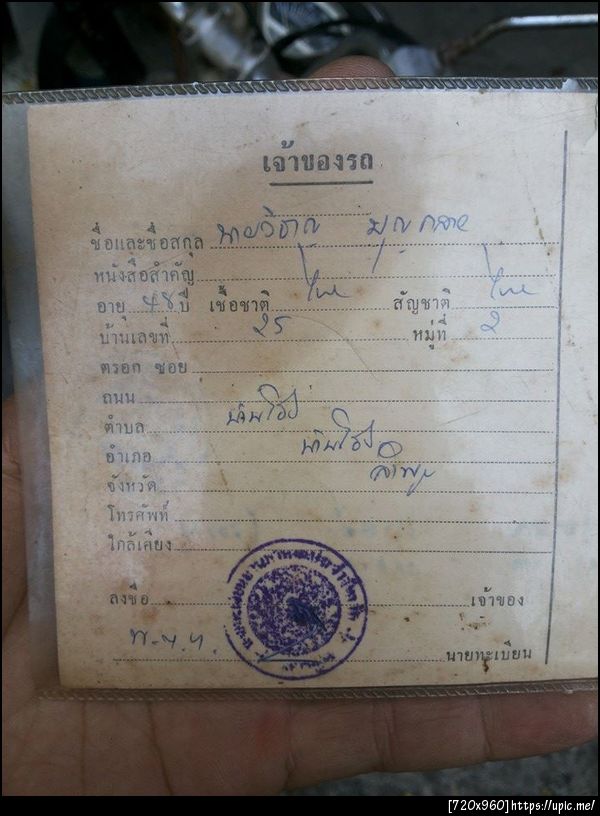 เจ้าของรถ
ชื่อและชื่อสกุล นายวิชาญ บุญกลาง
หนังสือสำคัญ
อายุ 48 ปี เชื้อชาติ ไทย สัญชาติ ไทย
บ้านเลขที่ 25 หมู่ที่ 2
ตรอก ซอย
ถนน
ตำบล บ้านโฮ่ง
อำเภอ บ้านโฮ่ง
จังหวัด ลำพูน
โทรศัพท์
ใกล้เคียง
ลงชื่อ เจ้าของ
นายทะเบียน
[720x960]https://upic.me/